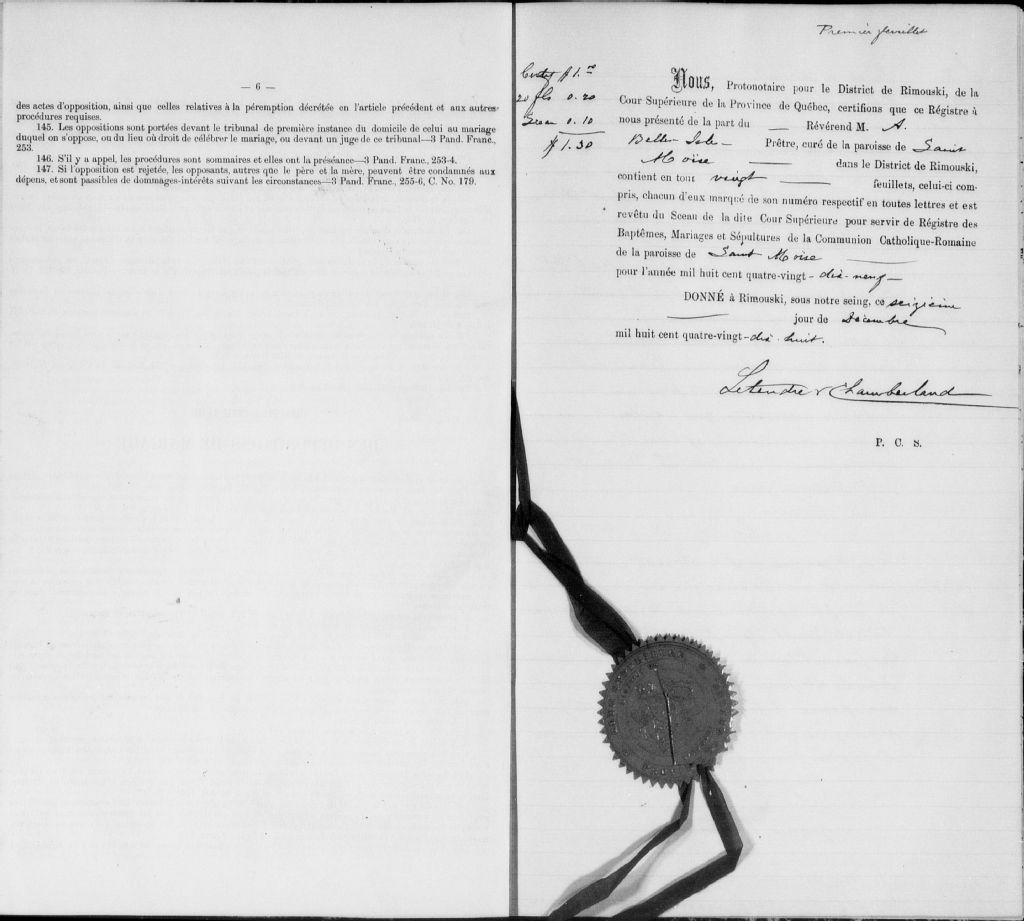 — 6 —
des actes d'opposition, ainsi que celles relatives à la péremption décrétée en l'article précédent et aux autres
procédures requises.
145. Les oppositions sont portées devant le tribunal de première instance du domicile de celui au mariage
duquel on s'oppose, ou du lieu où droit de célébrer le mariage, ou devant un juge de ce tribunal—3 Pand. Franc.,
253.
146. S'il y a appel, les procédures sont sommaires et elles ont la préséance—3 Pand. Franc., 253-4.
147. Si l'opposition est rejetée, les opposants, autres que le père et la mère, peuvent être condamnés aux
dépens, et sont passibles de dommages-intérêts suivant les circonstances—3 Pand. Franc., 255-6, C. No. 179.
Premier feuillet
$1.00
20 fls 0.20
Sceau 0.10
$1.30
Nous, Protonotaire pour le District de Rimouski, de la
Cour Supérieure de la Province de Québec, certifions que ce Régistre à
nous présenté de la part du — Révérend M. A.
Belle-Isle — Prêtre, curé de la paroisse de Saint
Moïse — dans le District de Rimouski,
contient en tout vingt — feuillets, celui-ci com-
pris, chacun d'eux marqué de son numéro respectif en toutes lettres et est
revêtu du Sceau de la dite Cour Supérieure pour servir de Régistre des
Baptêmes, Mariages et Sépultures de la Communion Catholique-Romaine
de la paroisse de Saint Moïse —
pour l'année mil huit cent quatre-vingt-dix-neuf —
DONNÉ à Rimouski, sous notre seing, ce seizième
— jour de Décembre
mil huit cent quatre-vingt-dix-huit.
Letendre & Chamberland
P. C. S.